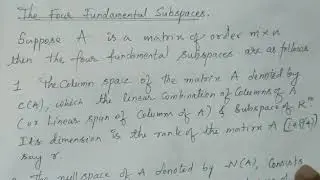 The Four Fundamental Subspaces.
Suppose A is a matrix of order m×n
then the four fundamental subspaces are as follows
1 The Column space of the matrix A denoted by
C(A), which the linear Combination of Columns of A
(or Linear span of Columns of A) & Subspace of R^m
Its dimension is the rank of the matrix A
say r.
The null space of A denoted by N(A), Consists